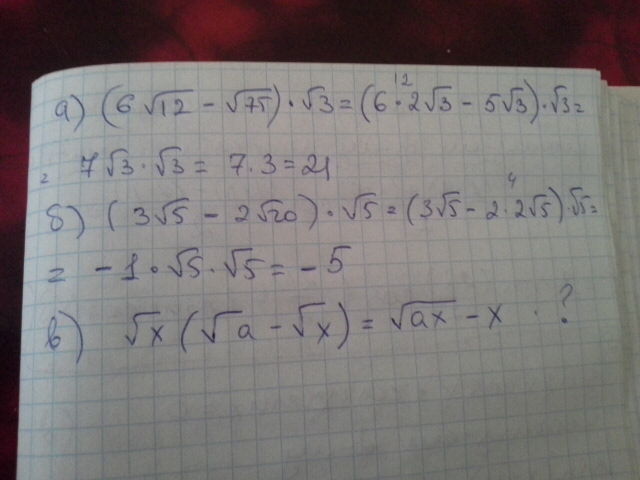 а) (6√12 - √75)·√3 = (6·2√3 - 5√3)·√3 =
12
= 7√3·√3 = 7·3 = 21
б) (3√5 - 2√20)·√5 = (3√5 - 2·2√5)·√5 =
4
= -1·√5·√5 = -5
в) √x (√a - √x) = √ax - x . ?